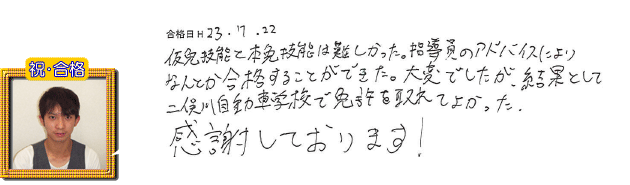 合格日 H 23.7.22
仮免技能と本免技能は難しかった。指導員のアドバイスにより
なんとか合格することができた。大変でしたが、結果として
二俣川自動車学校で免許を取れてよかった.
感謝しております!
祝・合格